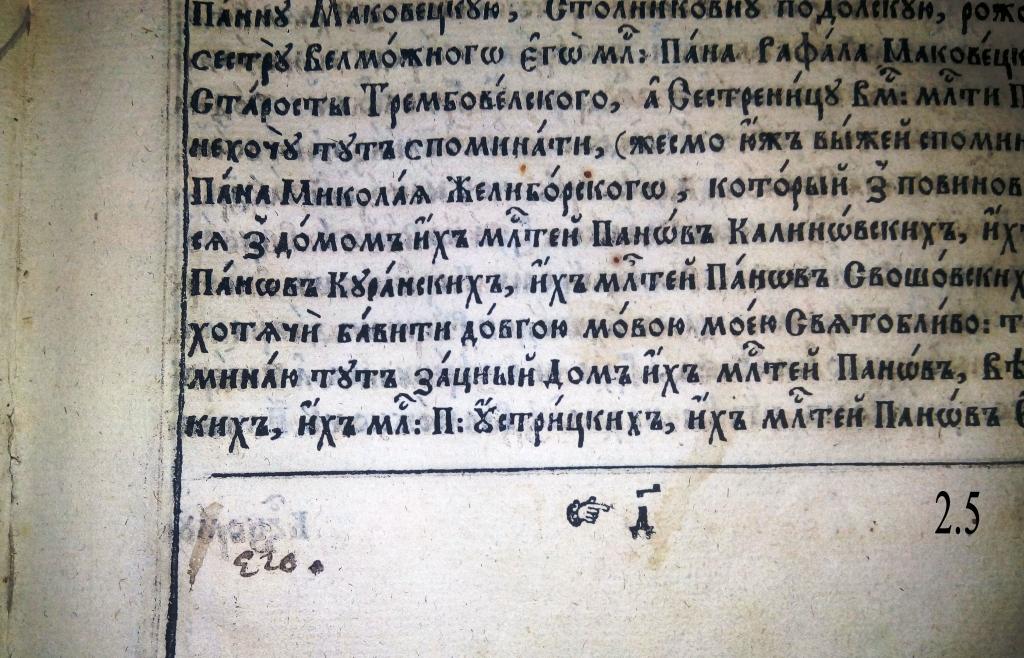 Па́нну Маковецкую, Столниковну подолскую, рожо
сестрꙋ̀ Велмо́жногѡ є҆гѡ̀ мл҃: Па́на Рафа́ла Макове́цк
Ста́росты Трембове́лского, а҆ Сестрени́цꙋ Вм҃: мл҃ти П
нехо́чꙋ тꙋтъ спомина́ти, (жесмо ю҆жъ вы́жей спомин
Па́на Микола́ѧ Желибо́рскогѡ, кото́рый з̾ повинов
сѧ з̾ до́момъ и҆́хъ мл҃тей Панѡ́въ Калинѡ́вскихъ, и҆́хъ
Па́нѡвъ Кꙋра́нскихъ, и҆́хъ мл҃тей Па́нѡвъ Свошо́вских
хотѧ́чи ба́вити до́вгою мо́вою мое́ю Свѧтобли́во: т
мина́ю тꙋтъ за́цный Домъ и҆́хъ мл҃тей Панѡ́въ, Вѣ
кихъ, и҆́хъ мл҃: П: Оу҆стри́цкихъ, и҆́хъ мл҃тей Панѡ́въ
☞ д҃
2.5
его.